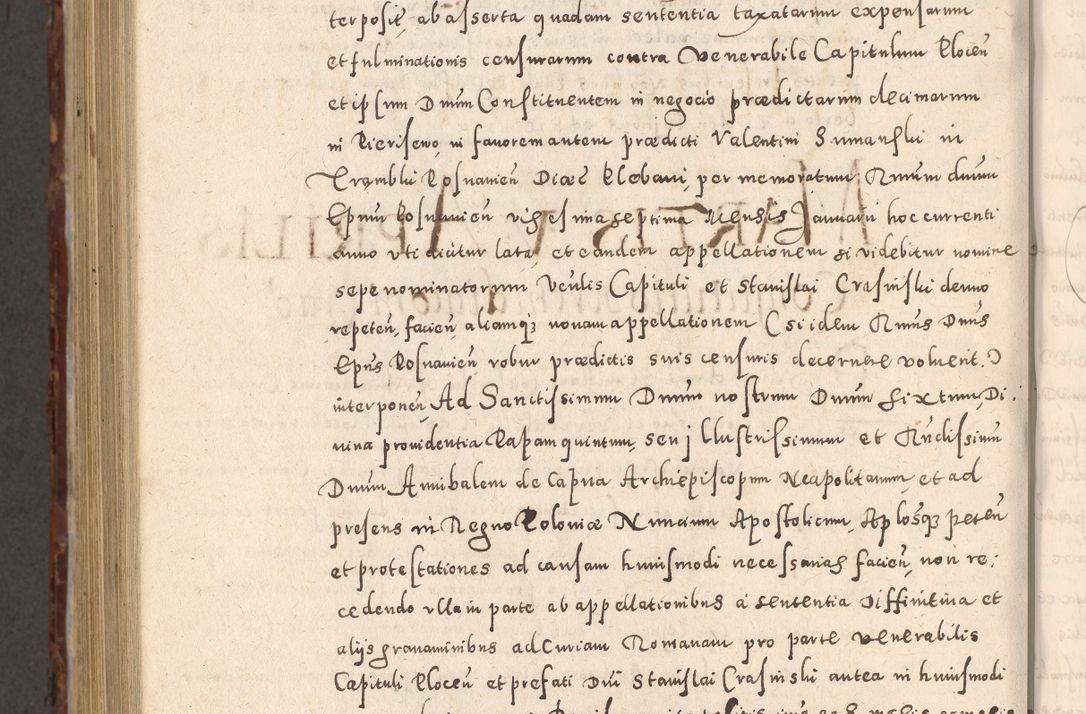 terposit, ab asserta quadam sententia taxatarum expensarum
et fulminationis censurarum contra Venerabile Capitulum Plocen
et ipsum Dnum Constituentem in negocio prædictarum decimarum
in Pierisewo, in favorem autem prædicti Valentini Sumanski in
Posnanien Dioec Plebani, per memoratum Rmum dnum
Epum Posnanien vigesima septima Mensis Januarii hoc currenti
anno uti dicitur lata, et eandem appellationem si videbitur nomine
sepe nominatorum Venlis Capituli et Stanislai Crasinski denuo
repeten, facien, aliamq3 novam appellationem (si idem Rmus Dnus
Epus Posnanien robur prædictis suis censuris decernere voluerit.)
interponen, Ad Sanctissimum Dnum nostrum Dnum Sixtum, Di:
uina providentia Papam quintum, seu jllustrissimum et Rndissimum
Dnum Annibalem de Capua Archiepiscopum Neapolitanum, et ad
presens in Regno Poloniæ Nuncium Apostolicum, Aplosq3 peten
et protestationes ad causam huiusmodi necessarias facien, non re:
cedendo ulla in parte ab appellationibus à sententia Diffinitiua et
aliis grauaminibus ad Curiam Romanam pro parte venerabilis
Capituli Plocen et prefati Dni Stanislai Crasinski antea in huiusmodi